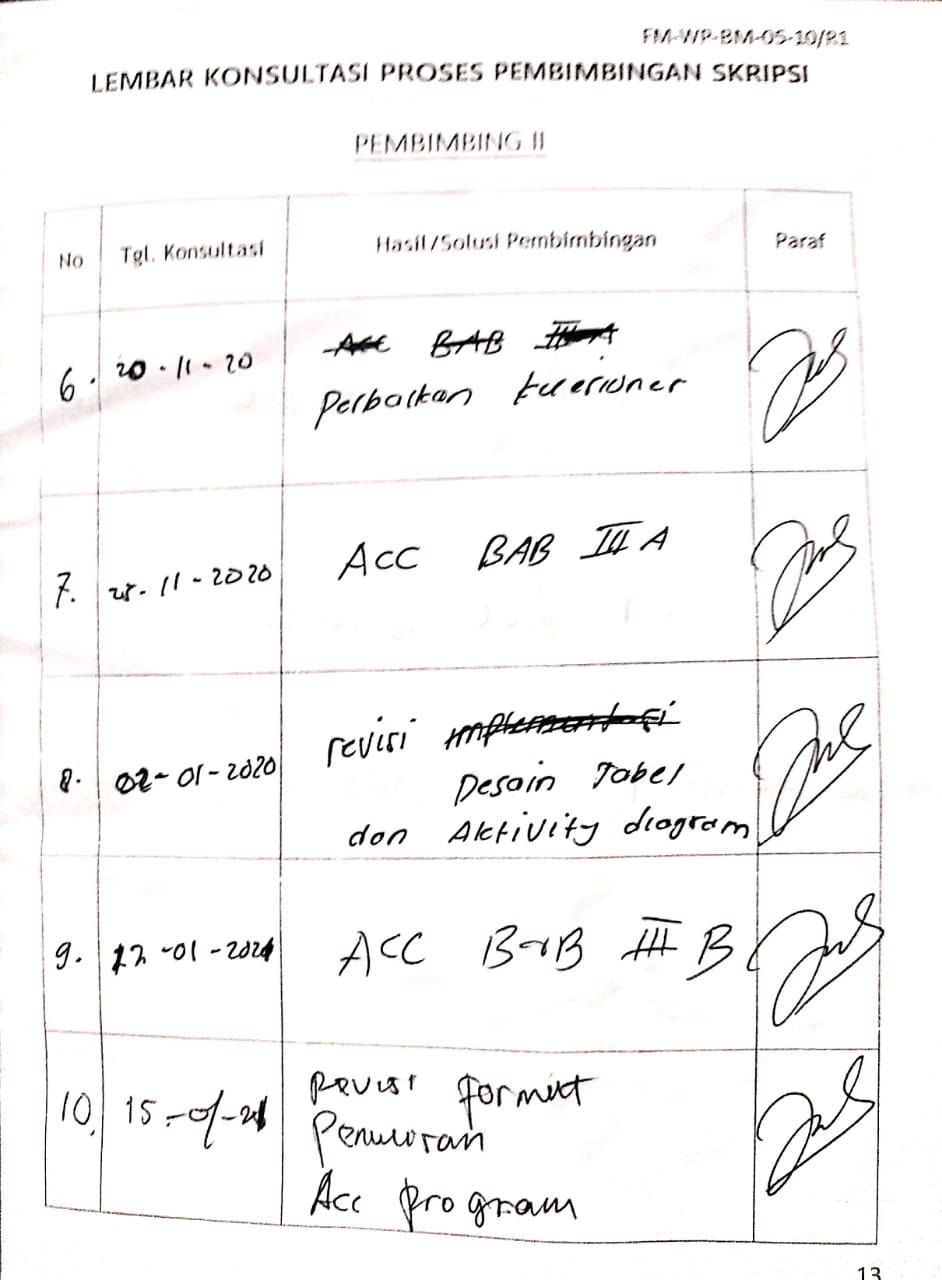 FM-WP-BM-05-10/R1
LEMBAR KONSULTASI PROSES PEMBIMBINGAN SKRIPSI
PEMBIMBING II
No Tgl. Konsultasi Hasil/Solusi Pembimbingan Paraf
6. 20-11-20 Acc BAB III A
Perbaikan kuesioner
7. 25-11-2020 ACC BAB III A
8. 02-01-2020 revisi implementasi
Desain Tabel
dan Aktivity diagram
9. 12-01-2021 ACC BAB III B
10. 15-01-21 Revisi format
Penulisan
Acc program
13